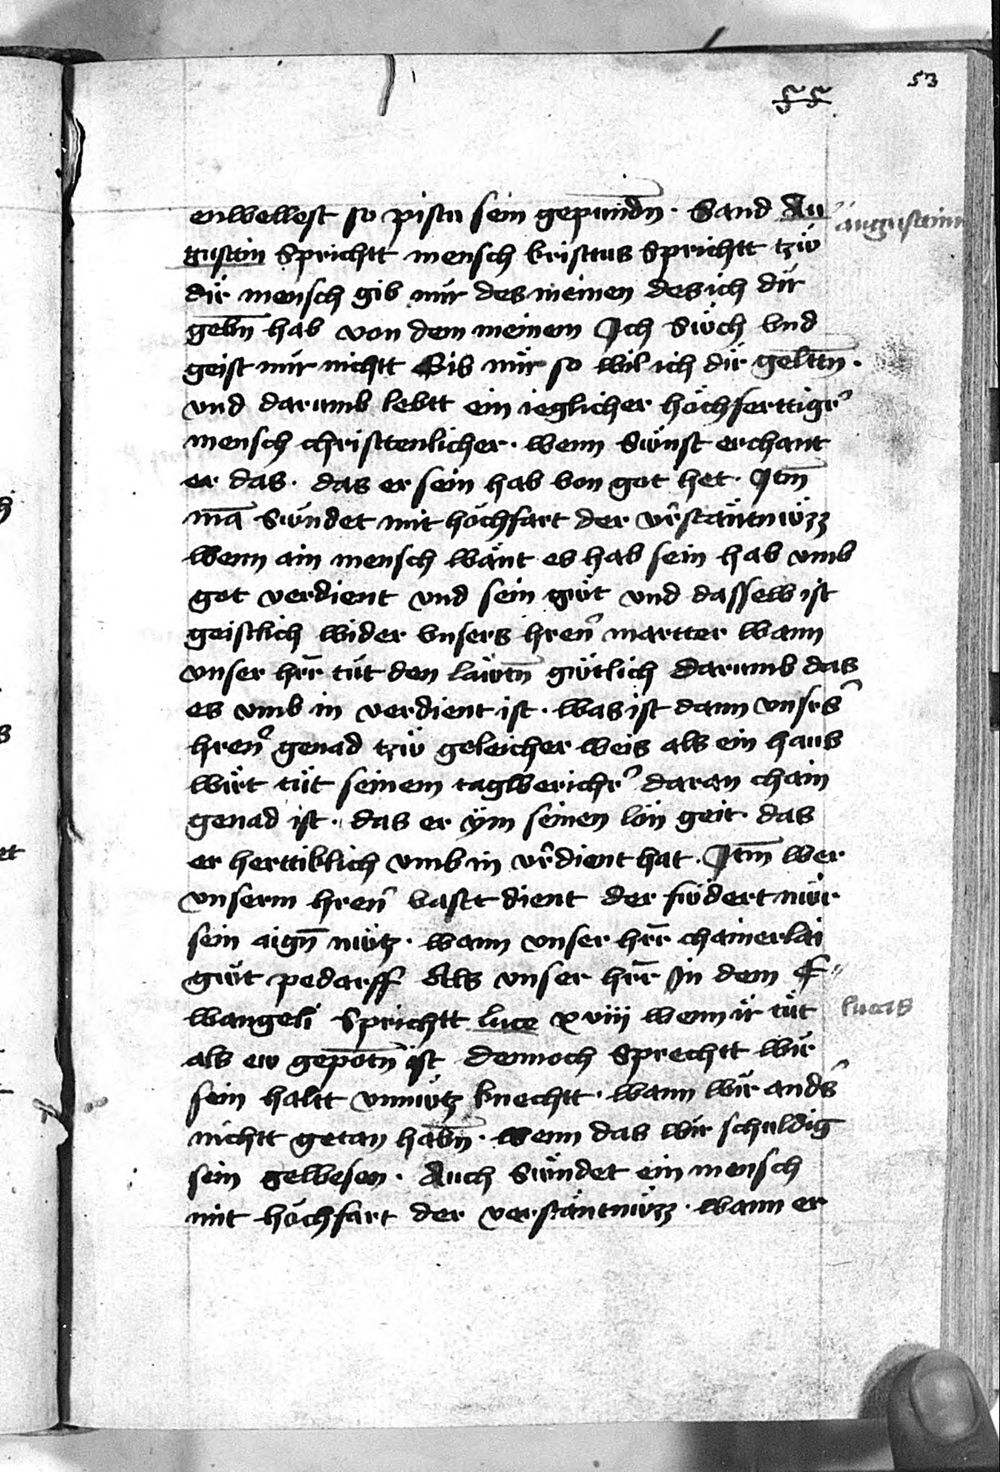 53
enwellest so pistu sein gepundn̄ · Sand Au
augustein
gustein Sprichtt mensch kristtus Sprichtt tzw̎
dir mensch gib mir des meinen des ich dir
gebn̄ hab von dem meinem Ich Sw̎ch vnd
geist mir nichtt Gib mir so wil ich dir geltn̄ ·
vnd darumb lebtt ein ieglicher höchferttigr̄
mensch christtenlicher · wenn Sw̎nst erchant
er das · das er sein hab von got het · Itm̄
mā Sw̎ndet mit höchfart der vr̄stäntnw̎zz
wenn ain mensch wänt es hab sein hab vmb
got verdient vnd sein gw̎t vnd dassew ist
geistlich wider vnsers hren̄ martter wann
vnser hrr̄ tut den läwtn̄ gw̎tlich darumb das
es vmb in verdient ist · was ist dann vnsrs̄
hren̄ genad tzw̎ geleicher weis als ein haus
wirt tüt seinem tagwerichr̄ daran chain
genad ist · das er ÿm seinen lön geit · das
er herttiklich vmb in vr̄dient hat · Itm̄ wer
vnserm hren̄ vastt dient der fw̎dert nw̎r
sein aign̄ nw̎tz · wann vnser hrr̄ chainerlai
gw̎t pedarff Als vnser hrr̄ In dem E
wangeli Sprichtt luce xviii wenn ir tüt
lucas
als ew gepotn̄ ist dennoch Sprechtt wir
sein haltt vnnw̎tz knechtt · wann wir andr̄s
nichtt getan habn̄ · wenn das wir schuldig
sein gewesen · Auch Sw̎ndet ein mensch
mit höchfart der verstäntnw̎zz · wann er